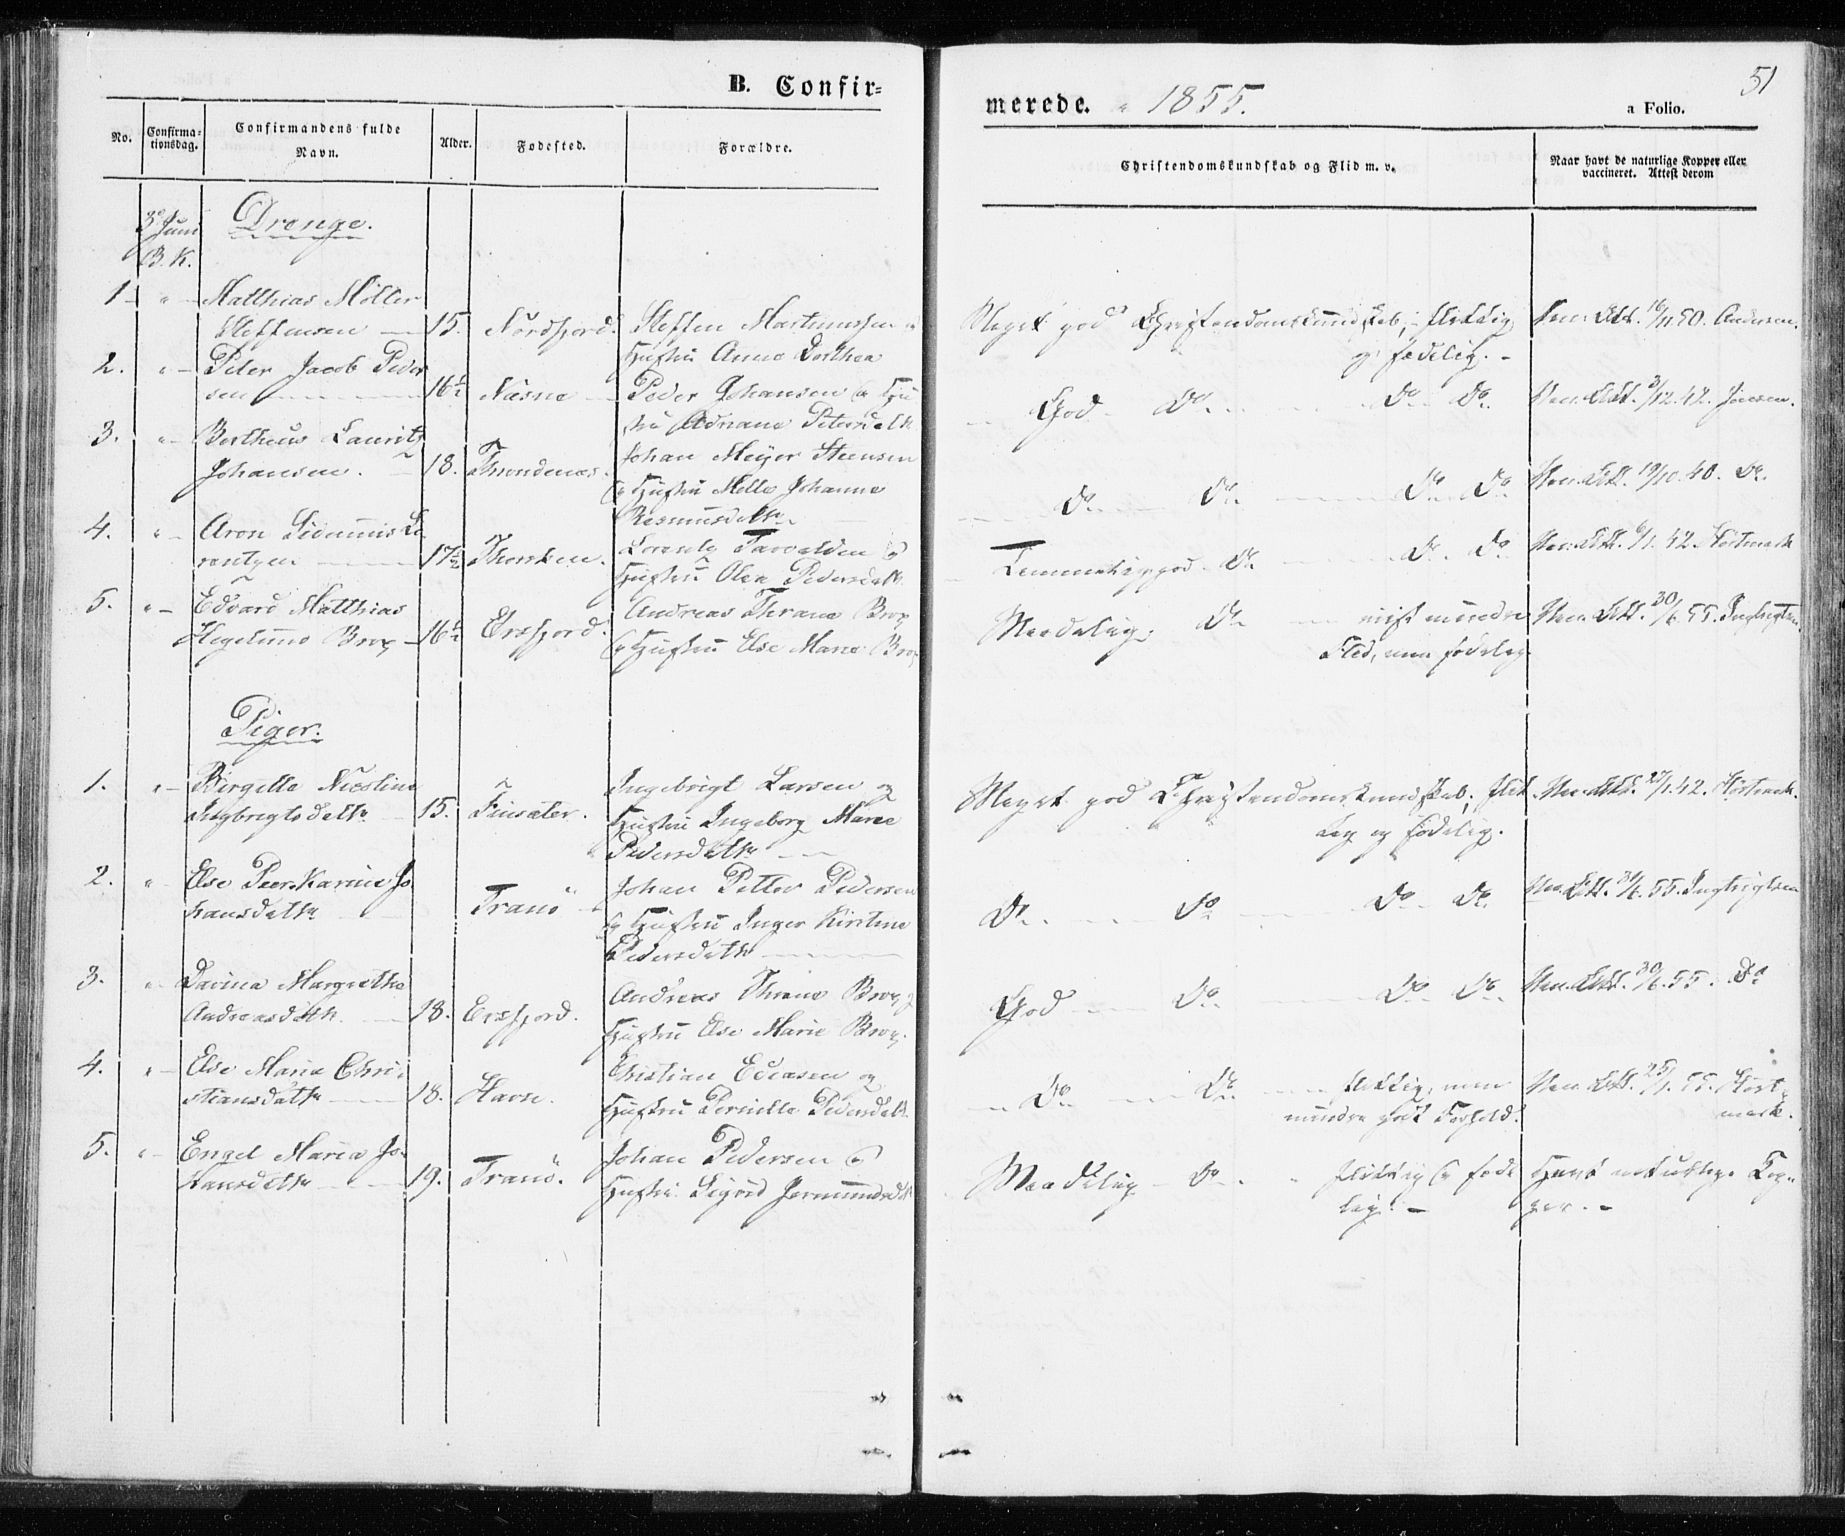 B. Confir=
merede. 1855.
51
a Folio.
No.
Confirma=
tionsdag.
Confirmandens fulde
Navn.
Alder.
Fødested.
Forældre.
Christendomskundskab og Flid m. v.
Naar havt de naturlige Kopper eller
vaccineret. Attest derom
3º Juni
B. K.
Drenge.
1 Matthias Møller
Steffensen 15. Nordfjord. Steffen Martinussen
Hustru Anne Dorthea
Meget god Christendomskundskab; flittig
og sædelig.
Vac. Att. 16/11 50. Andersen.
2. Peter Jacob Peder
sen 16½ Næsne Peder Johansen og Hu
stru Adriane Petersdatt
God Do Do Do
Vac. Att. 3/12 42. Jensen.
3. Bertheus Lauritz
Johansen. 18. Throndenæs. Johan Meyer Steensen
og Hustru Mette Johanne
Rasmusdattr
Do Do Do Do
Vac. Att. 19/10 40. Do
4. Aron Sidenius Lo
rentzen 17½ Thorsken. Lorentz Torvaldsen og
Hustru Olea Pedersdattr
Temmelig god Do Do Do
Vac. Att. 6/1 42. Hertmark
5. Edvard Matthias
Hegelund Brox 16½ Ersfjord. Andreas Thrane Brox
og Hustru Else Marie Brox
Maadelig Do mindre
Flid, men sædelig
Vac. Att. 30/6 55. Ingbrigtsen
Piger.
1. Birgitte Nicoline
Ingbrigtsdattr 15. Finsæter. Ingebrigt Larsen og
Hustru Ingeborg Marie
Pedersdattr
Meget god Christendomskundskab; flit
tig og sædelig.
Vac. Att. 27/1 42. Hertmark.
2. Else Peerskarine Jo
hansdattr Tranö Johan Petter Pedersen
og Hustru Inger Kirstine
Pedersdattr
Do Do Do Do
Vac. Att. 55. Ingbrigtsen
3. Davina Margrethe
Andreasdattr. 18. Ersfjord. Andreas Thrane Brox og
Hustru Else Marie Brox.
God Do Do Do
Vac. Att. 30/6 55. Do
4. Else Maria Chri
stiansdattr 18. Havn. Christian Edeasen og
Hustru Pernille Pedersdatt.
Do Do flittig, men
mindre godt Forhold.
Vac. Att. 25/1 55. Hert
mark.
5. Engel Maria Jo
hansdattr 19. Tranö. Johan Pedersen og
Hustru Sigrid Jermundsdatt
Maadelig Do flittig og sæde
lig.
Havt naturlige Kop
per.